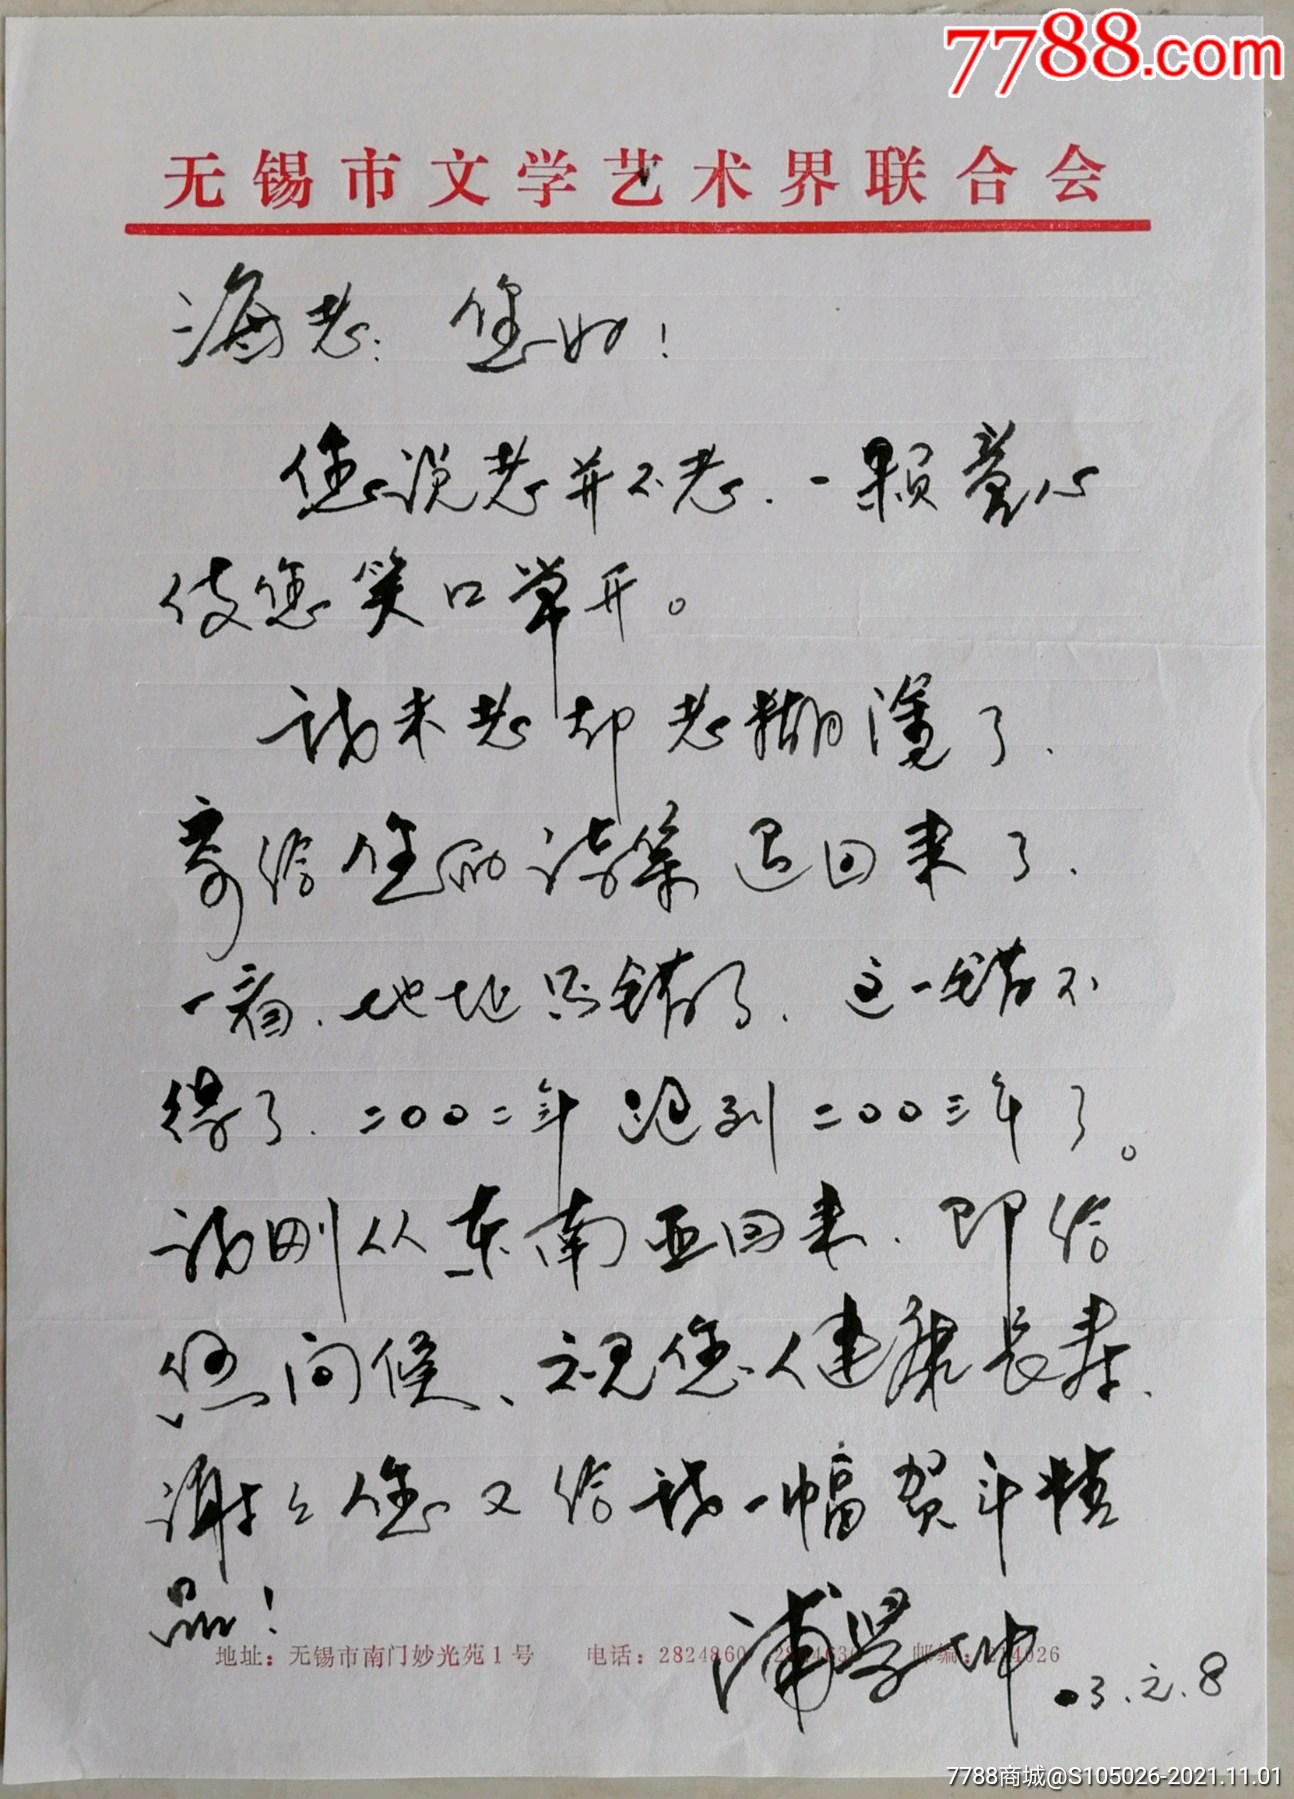 7788.com
无锡市文学艺术界联合会
海老：您好！
您说老并不老，一颗童心
使您笑口常开。
我未老却老糊涂了，
寄给您的诗集退回来了，
一看，地址写错了，这一错不
得了，二〇〇二年退到二〇〇三年了。
我刚从东南亚回来，即给
您问候、祝您健康长寿，
谢谢您又给我一幅贺年精
品！
地址：无锡市南门妙光苑1号 电话：2824860 邮编：214026
浦学坤 03.元.8
7788商城@S105026-2021.11.01